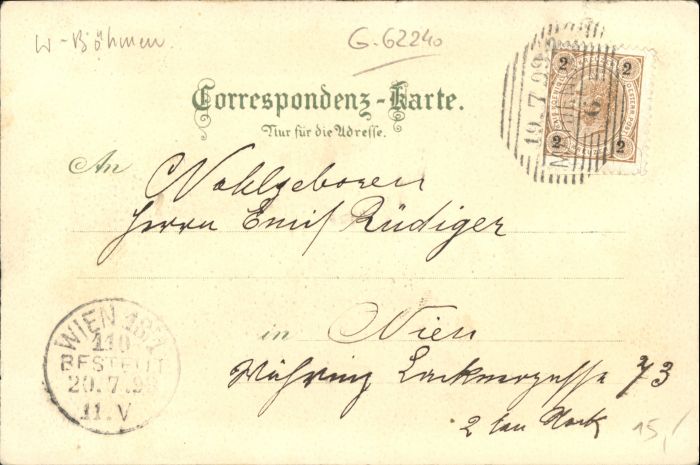 W-Böhmen.
G. 62240
Correspondenz-Karte.
Nur für die Adresse.
2 2
2 2
19.7.99
An Wohlgeboren
Herrn Emil Rüdiger
in Wien
Währing Lacknergasse 73
2ten Stock
15,/
WIEN 18/1
110
BESTELLT
20.7.99
11.V